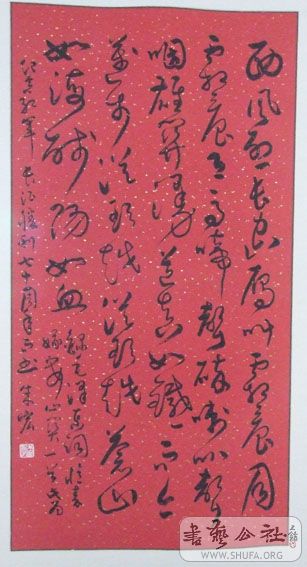 西风烈长空雁叫霜晨月
霜晨月马蹄声碎喇叭声
咽雄关漫道真如铁而今
迈步从头越从头越苍山
如海残阳如血
録毛泽东词忆秦
娥娄山关一首
纪念红军长征胜利七十周年
書藝公社
www.SHUFA.ORG